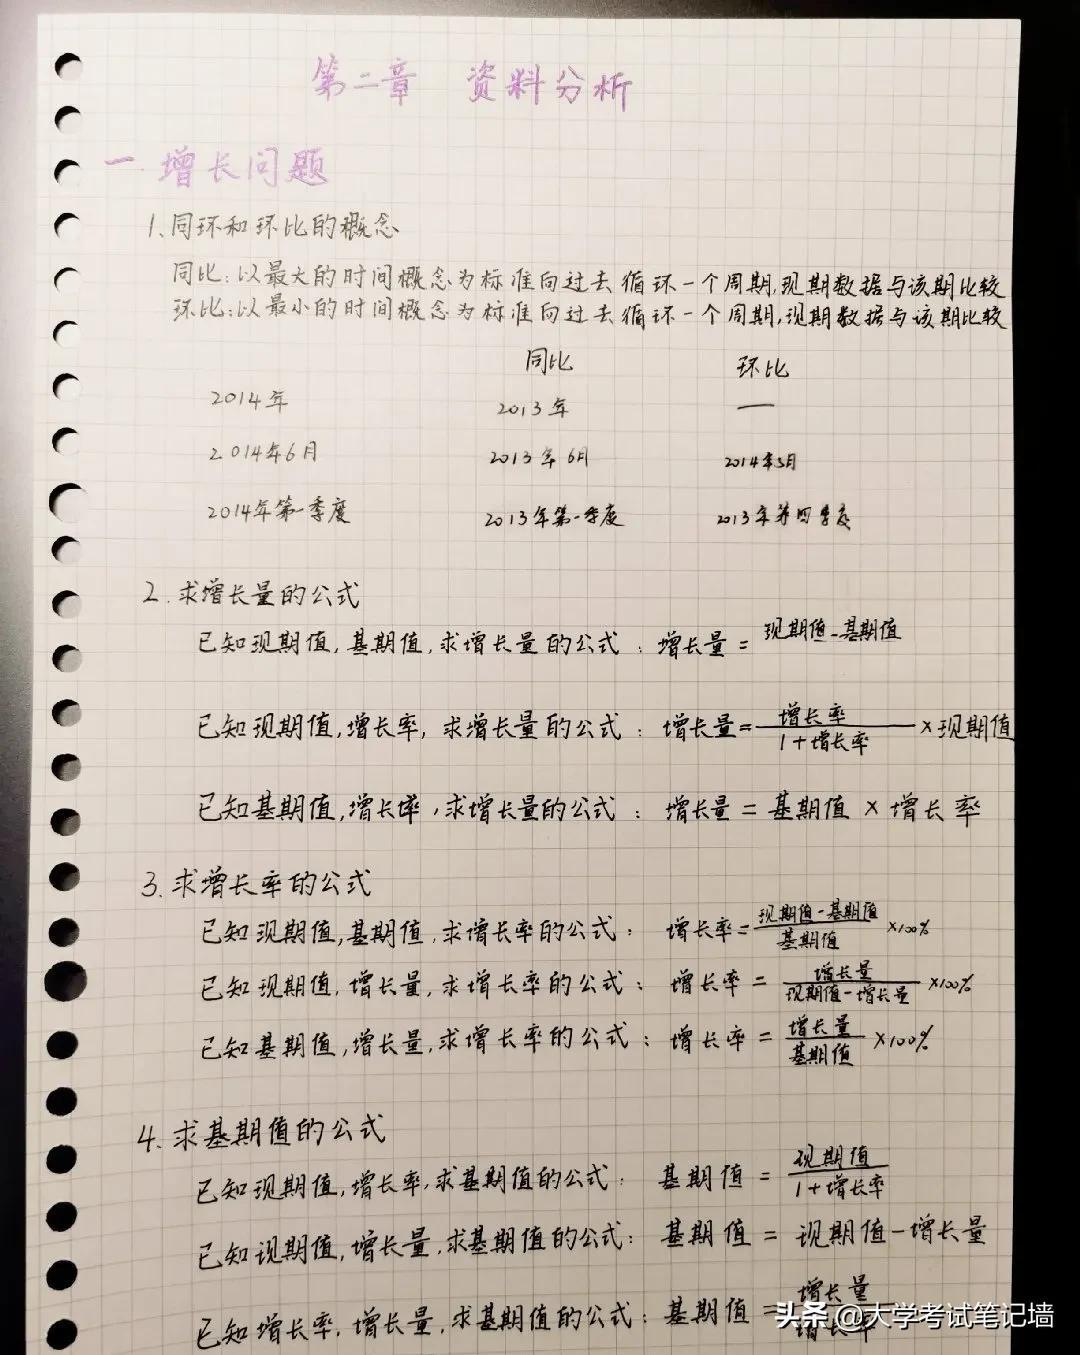 第二章 资料分析
一.增长问题
1.同环和环比的概念
同比:以最大的时间概念为标准向过去循环一个周期,现期数据与该期比较
环比:以最小的时间概念为标准向过去循环一个周期,现期数据与该期比较
同比 环比
2014年 2013年 —
2014年6月 2013年6月 2014年5月
2014年第一季度 2013年第一季度 2013年第四季度
2.求增长量的公式
已知现期值,基期值,求增长量的公式:增长量=现期值-基期值
已知现期值,增长率,求增长量的公式:增长量=增长率/1+增长率×现期值
已知基期值,增长率,求增长量的公式:增长量=基期值×增长率
3.求增长率的公式
已知现期值,基期值,求增长率的公式:增长率=现期值-基期值/基期值×100%
已知现期值,增长量,求增长率的公式:增长率=增长量/现期值-增长量×100%
已知基期值,增长量,求增长率的公式:增长率=增长量/基期值×100%
4.求基期值的公式
已知现期值,增长率,求基期值的公式:基期值=现期值/1+增长率
已知现期值,增长量,求基期值的公式:基期值=现期值-增长量
已知增长率,增长量,求基期值的公式:基期值=增长量/增长率
头条@大学考试笔记墙